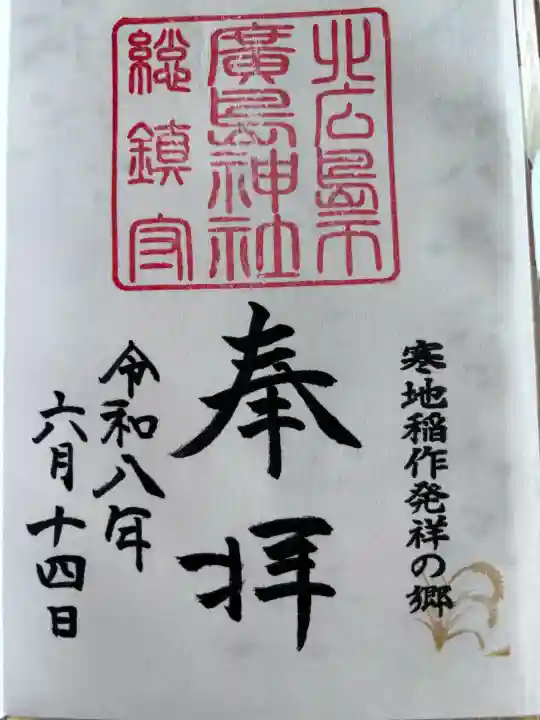 北広島市
廣島神社
総鎮守
寒地稲作発祥の郷
奉拝
令和八年
六月十四日